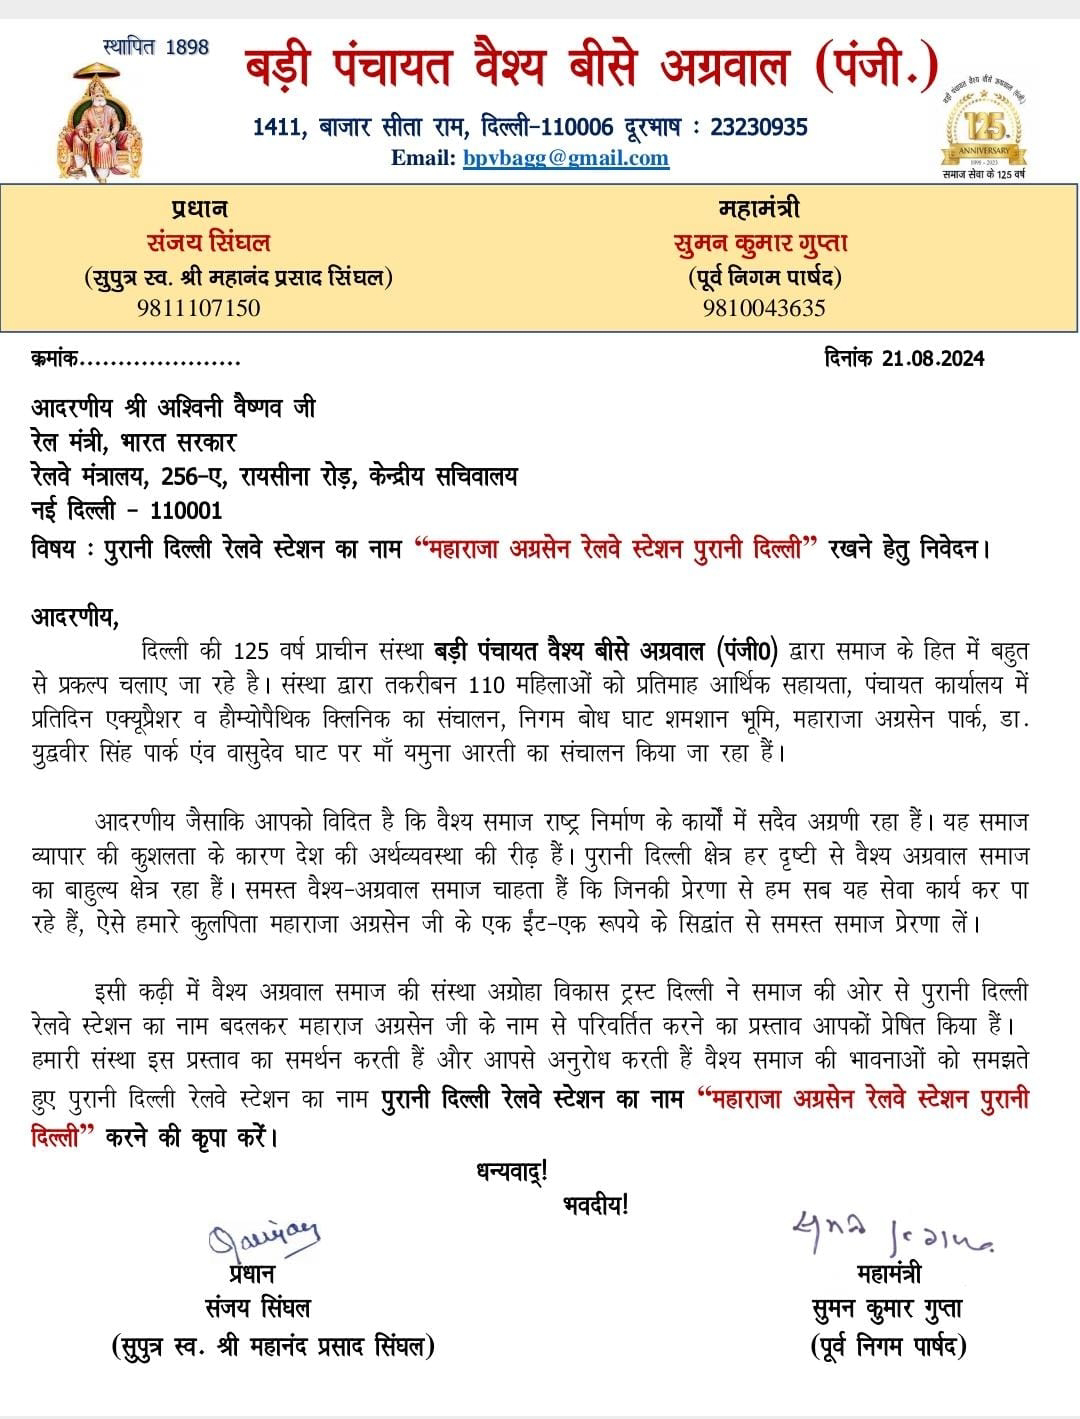 स्थापित 1898
बड़ी पंचायत वैश्य बीसे अग्रवाल (पंजी.)
1411, बाजार सीता राम, दिल्ली-110006 दूरभाष : 23230935
Email: bpvbagg@gmail.com
बड़ी पंचायत वैश्य बीसे अग्रवाल (पंजी.)
125
ANNIVERSARY
1898 - 2023
समाज सेवा के 125 वर्ष
प्रधान
संजय सिंघल
(सुपुत्र स्व. श्री महानंद प्रसाद सिंघल)
9811107150
महामंत्री
सुमन कुमार गुप्ता
(पूर्व निगम पार्षद)
9810043635
क्रमांक.....................
दिनांक 21.08.2024
आदरणीय श्री अश्विनी वैष्णव जी
रेल मंत्री, भारत सरकार
रेलवे मंत्रालय, 256-ए, रायसीना रोड़, केन्द्रीय सचिवालय
नई दिल्ली - 110001
विषय : पुरानी दिल्ली रेलवे स्टेशन का नाम “महाराजा अग्रसेन रेलवे स्टेशन पुरानी दिल्ली” रखने हेतु निवेदन।
आदरणीय,
दिल्ली की 125 वर्ष प्राचीन संस्था बड़ी पंचायत वैश्य बीसे अग्रवाल (पंजी0) द्वारा समाज के हित में बहुत
से प्रकल्प चलाए जा रहे है। संस्था द्वारा तकरीबन 110 महिलाओं को प्रतिमाह आर्थिक सहायता, पंचायत कार्यालय में
प्रतिदिन एक्यूप्रैशर व हौम्योपैथिक क्लिनिक का संचालन, निगम बोध घाट शमशान भूमि, महाराजा अग्रसेन पार्क, डा.
युद्ववीर सिंह पार्क एंव वासुदेव घाट पर माँ यमुना आरती का संचालन किया जा रहा हैं।
आदरणीय जैसाकि आपको विदित है कि वैश्य समाज राष्ट्र निर्माण के कार्यों में सदैव अग्रणी रहा हैं। यह समाज
व्यापार की कुशलता के कारण देश की अर्थव्यवस्था की रीढ़ हैं। पुरानी दिल्ली क्षेत्र हर दृष्टी से वैश्य अग्रवाल समाज
का बाहुल्य क्षेत्र रहा हैं। समस्त वैश्य-अग्रवाल समाज चाहता हैं कि जिनकी प्रेरणा से हम सब यह सेवा कार्य कर पा
रहे हैं, ऐसे हमारे कुलपिता महाराजा अग्रसेन जी के एक ईंट-एक रूपये के सिद्वांत से समस्त समाज प्रेरणा लें।
इसी कढ़ी में वैश्य अग्रवाल समाज की संस्था अग्रोहा विकास ट्रस्ट दिल्ली ने समाज की ओर से पुरानी दिल्ली
रेलवे स्टेशन का नाम बदलकर महाराज अग्रसेन जी के नाम से परिवर्तित करने का प्रस्ताव आपकों प्रेषित किया हैं।
हमारी संस्था इस प्रस्ताव का समर्थन करती हैं और आपसे अनुरोध करती हैं वैश्य समाज की भावनाओं को समझते
हुए पुरानी दिल्ली रेलवे स्टेशन का नाम पुरानी दिल्ली रेलवे स्टेशन का नाम “महाराजा अग्रसेन रेलवे स्टेशन पुरानी
दिल्ली” करने की कृपा करें।
धन्यवाद्!
भवदीय!
प्रधान
संजय सिंघल
(सुपुत्र स्व. श्री महानंद प्रसाद सिंघल)
महामंत्री
सुमन कुमार गुप्ता
(पूर्व निगम पार्षद)